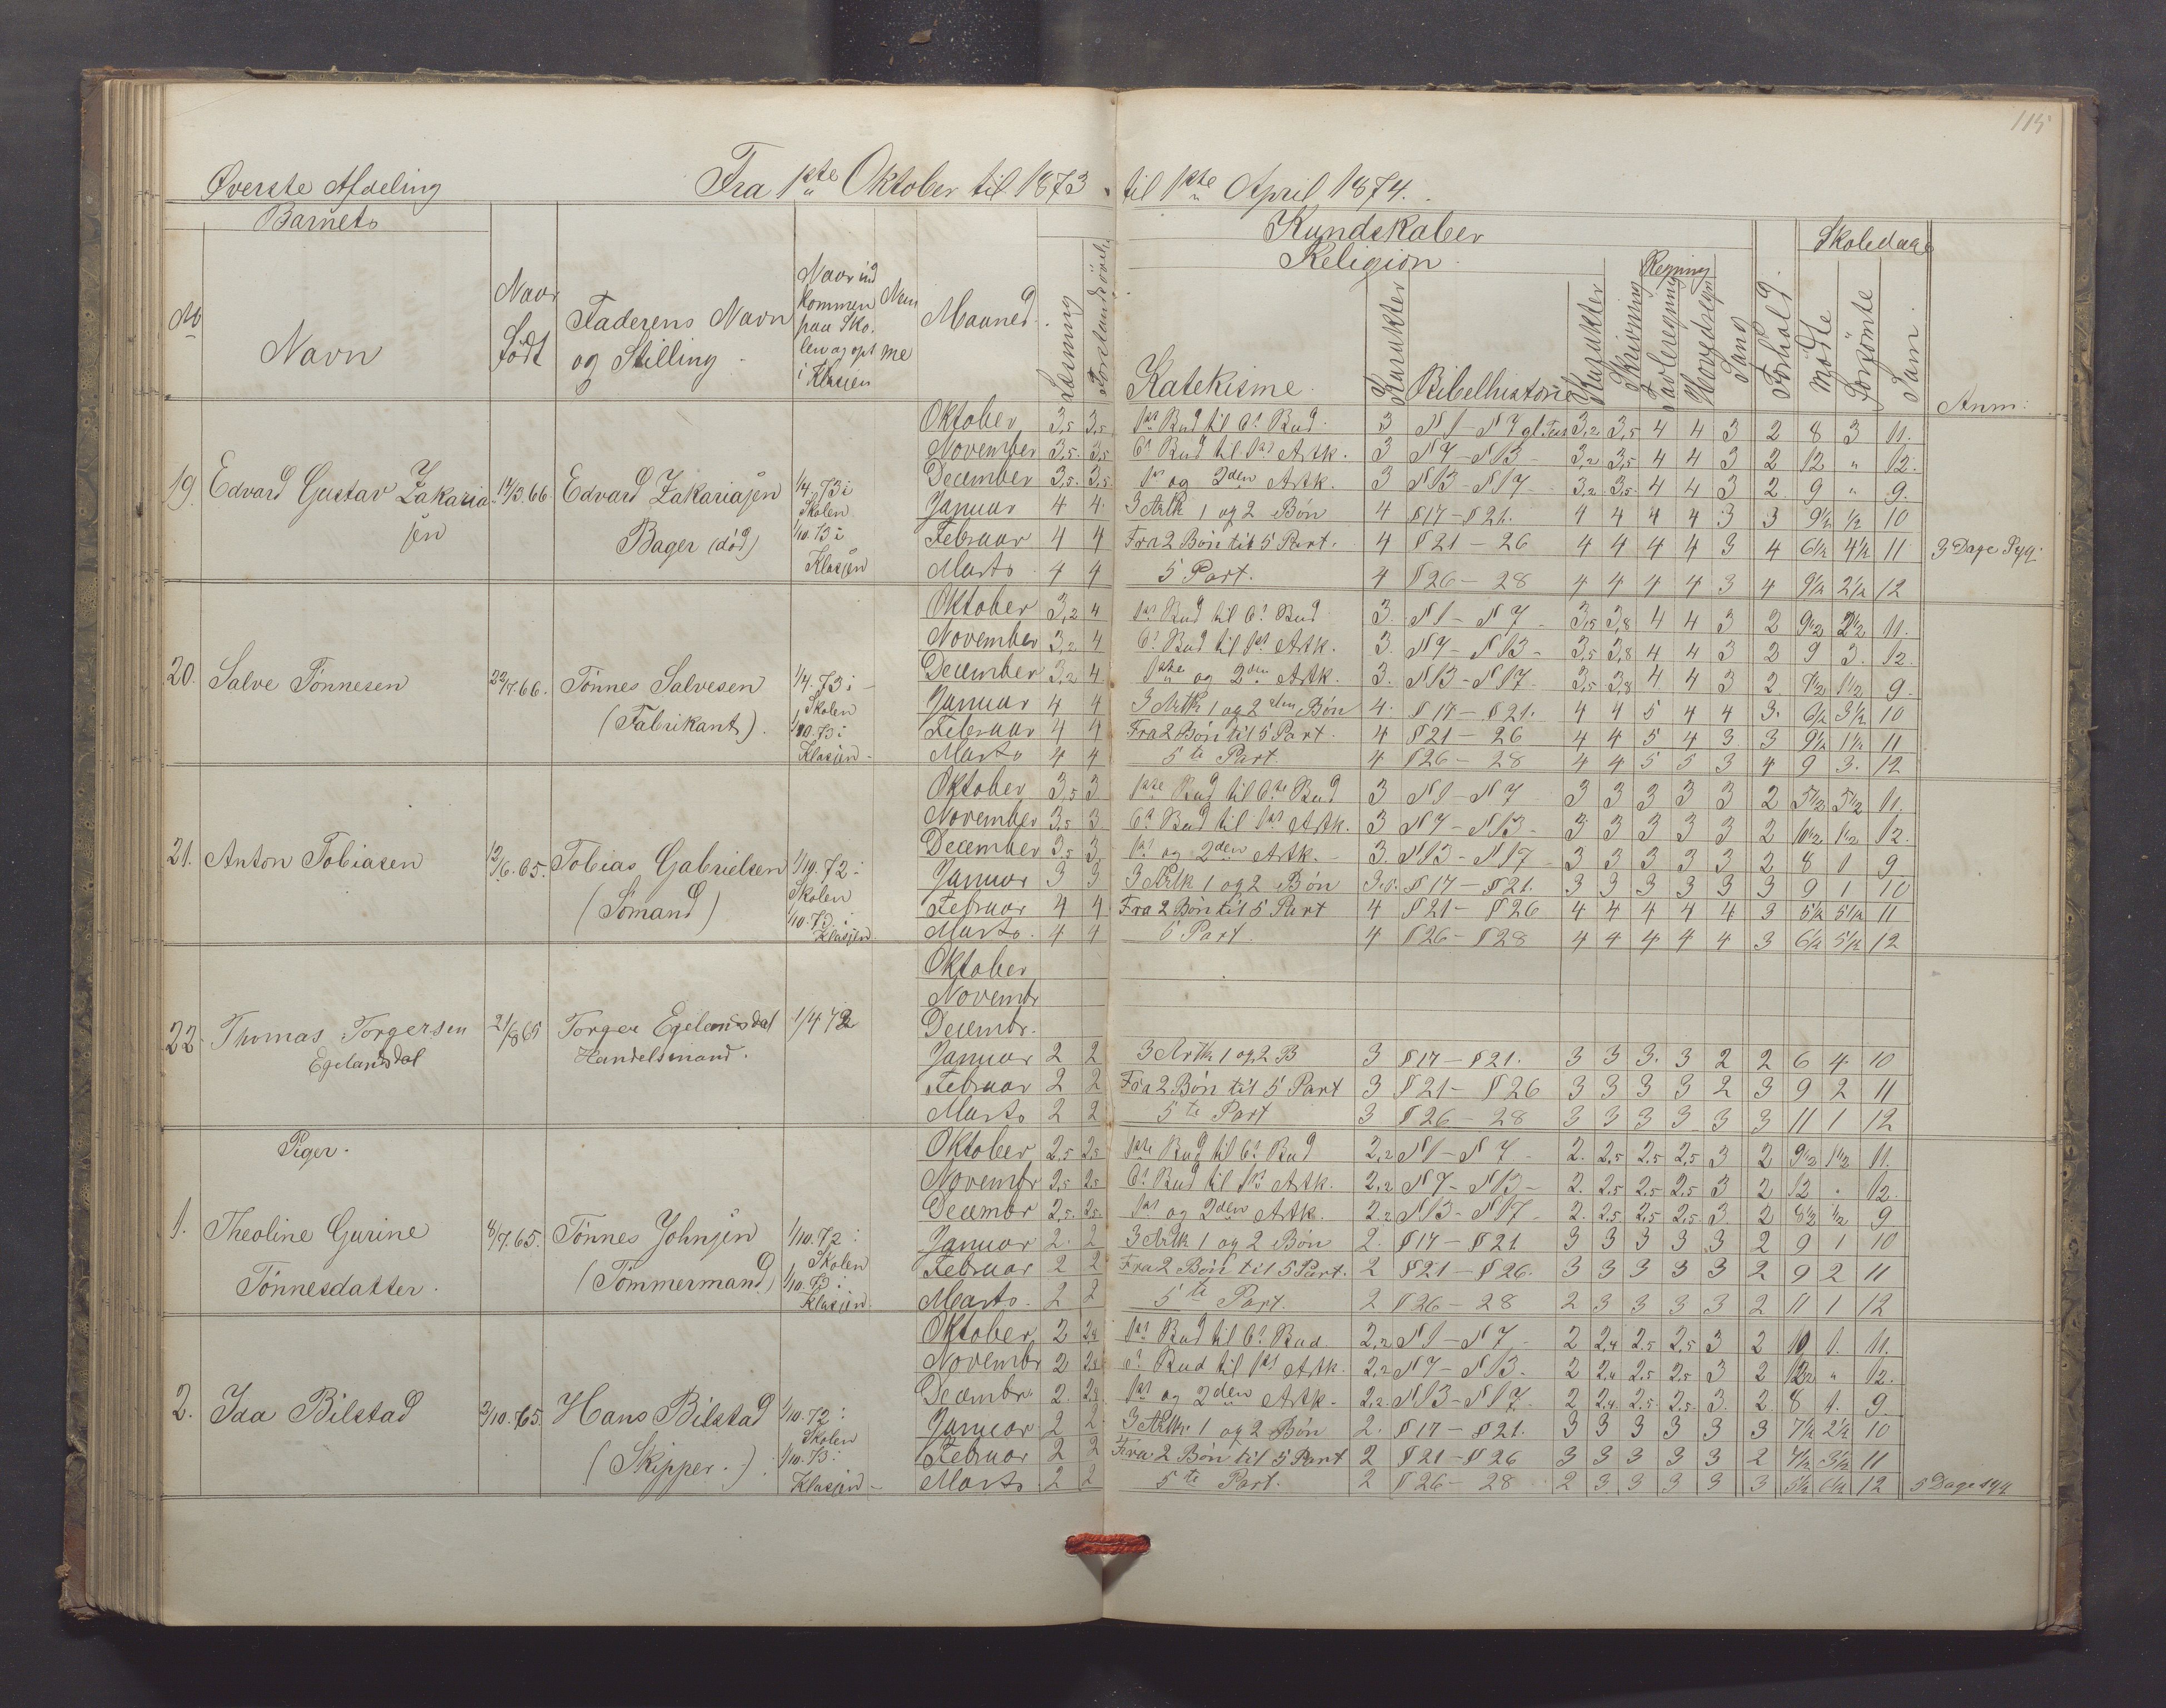 115
Øverste Afdeling
Fra 1ste Oktober til 1873 til 1ste April 1874.
Barnets
Kundskaber
Skoledage
Religion
Regning
No
Navn
Naar
født
Faderens Navn
og Stilling
Naar ind
kommen
paa Sko.
len og opt
i Klassen
Maaned.
Læsning
Katekisme.
Karakter
Bibelhistorie
Karakter
Skrivning
Tavleregning
Hovedregn
Sang
Forhold.
Mødte
Forsømte
Sum.
Anm:
Oktober 3,5 3,5 1ste Bud til 6te Bud. 3 § 1 - § 7 gl. Tes 3,2 3,5 4 4 3 2 8 3 11.
November 3,5. 3,5 6te Bud til 1ste Artk. 3 § 7 - § 13 - 3,2 3,5 4 4 3 2 12 " 12.
December 3,5. 3,5. 1ste og 2den Artk. 3 § 13 - § 17 - 3,2. 3,5. 4 4 3 2. 9 " 9.
19. Edvard Gustav Zakaria 14/3.66 Edvard Zakariasen 1/4.73 i
sen Bager (død) Skolen
1/10.73 i
Klassen
Januar 4 4. 3 Artk 1 og 2 Bøn 4 § 17 - § 21. 4 4 4 4 3 3 9½ ½ 10
Februar 4 4 Fra 2 Bøn til 5 Part. 4 § 21 - 26 4 4 4 4 3 4 6½ 4½ 11 3 Dage Syg.
Marts 4 4 5 Part. 4 § 26 - 28 4 4 4 4 3 4 9½ 2½ 12
Oktober 3,2 4 1ste Bud til 6te Bud 3. § 1 - § 7 - 3,5 3,8 4 4 3 2 9½ 2½ 11.
November 3,2 4 6te Bud til 1ste Artk. 3. § 7 - § 13 - 3,5 3,8 4 4 3 2 9 3. 12.
December 3,2 4. 1ste og 2den Artk. 3. § 13 - § 17 - 3,5 3,8 4. 4 3 2. 7½ 1½ 9.
20. Salve Tønnesen 22/7.66. Tønnes Salvesen 1/4.73 i -
(Fabrikant). Skolen
1/10.73 i
Klassen -
Januar 4 4 3 Artk 1 og 2den Bøn 4. § 17 - § 21. 4 4 5 4 4 3. 6½ 3½ 10
Februar 4 4 Fra 2 Bøn til 5 Part. 4 § 21 - 26 4 4 5 4 3 3 9½ 1½ 11
Marts 4 4 5te Part. 4 § 26 - 28 4 4 5 5 3 4 9 3. 12
Oktober 3,5 3 1ste Bud til 6te Bud 3 § 1 - § 7 3 3 3 3 3 2 5½ 5½ 11.
November 3,5 3 6te Bud til 1ste Artk. 3 § 7 - § 13 - 3 3 3 3 3 2 10½ 1½ 12.
December 3,5 3 1ste og 2den Artk. - 3. § 13 - § 17 - 3 3 3 3 3 2 8 1 9
21. Anton Tobiasen 12/6.65. Tobias Gabrielsen 1/10.72 i
(Sømand) Skolen
1/10.73 i
Klassen
Januar 3 3 3 Artk 1 og 2 Bøn § 17 - § 21. 3 3 3 3 3 3 9 1 10
Februar 4 4 Fra 2 Bøn til 5 Part 4 § 21 - § 26 4 4 4 4 4 3 5½ 5½ 11
Marts. 4 4 5 Part. 4 § 26 - § 28 4 4 4 4 4 3 6½ 5½ 12
Oktober
Novembr
Decembr.
22. Thomas Torgersen 21/8 65 Torger Egelandsdal 1/4 72
Egelandsdal Handelsmand.
Januar 2 2 3 Artk 1 og 2 B 3 § 17 - § 21. 3 3 3. 3 2 2 6 4 10
Februar 2 2 Fra 2 Bøn til 5 Part 3 § 21 - § 26 3 3 3 3 2 3 9 2 11
Marts 2 2 5te Part 3 § 26 - 28 3 3 3 3 3 3 11 1 12
Piger.
Oktober 2,5 2,5 1ste Bud til 6te Bud 2,2 § 1 - § 7 - 2. 2,5 2,5 2,5 3 2 9½ 1½ 11.
Novembr 2,5 2,5 6te Bud til 1ste Artk. 2,2 § 7 - § 13 - 2. 2,5 2,5 2,5 3 2 12 . 12.
Decembr 2,5. 2,5. 1ste og 2den Artk. 2,2 § 13 - § 17 - 2. 2,5 2,5 2,5 3. 2 8½ ½ 9
1. Theoline Gurine 8/7.65. Tønnes Johnsen 1/10.72 i
Tønnesdatter. (Tømmermand) Skolen
1/10.73 i
Klassen.
Januar 2. 2 3 Artk 1 og 2 Bøn 2. § 17 - § 21 3 3 3 3 3 2 9 1 10
Februar 2 2 Fra 2 Bøn til 5 Part. 2 § 21 - § 26. 3 3 3 3 3 2 9 2 11
Marts. 2 2 5te Part. 2 § 26 - 28 2 3 3 3 3 2 11 1 12
Oktober 2 2,8 1ste Bud til 6te Bud 2,2 § 1 - § 7 - 2 2,4 2,5 2,5 3 2 10 1. 11.
Novembr 2 2,8 6te Bud til 1ste Artk. 2,2 § 7 - § 13 - 2 2,4 2,5 2,5 3 2 12 " 12.
Decembr 2. 2,8 1ste og 2den Artk - 2,2. § 13 - § 17 - 2 2,4. 2,5. 2,5. 3. 2. 8 1. 9.
2. Ida Bilstad 3/10.65. Hans Bilstad 1/10.72 i
(Skipper.) Skolen
1/10.73 i
Klassen -
Januar 2 2 3 Artk 1 og 2 Bøn 2. § 17 - § 21. 3 3 3 3 3 3 7½ 2½ 10
Februar 2 2 Fra 2 Bøn til 5 Part 2 § 21 - § 26 3 3 3 3 3 2 7½ 3½ 11
Marts 2 2 5te Part. 2 § 26 - 28 2 3 3 3 3 3 5½ 6½ 12 5 Dage syg